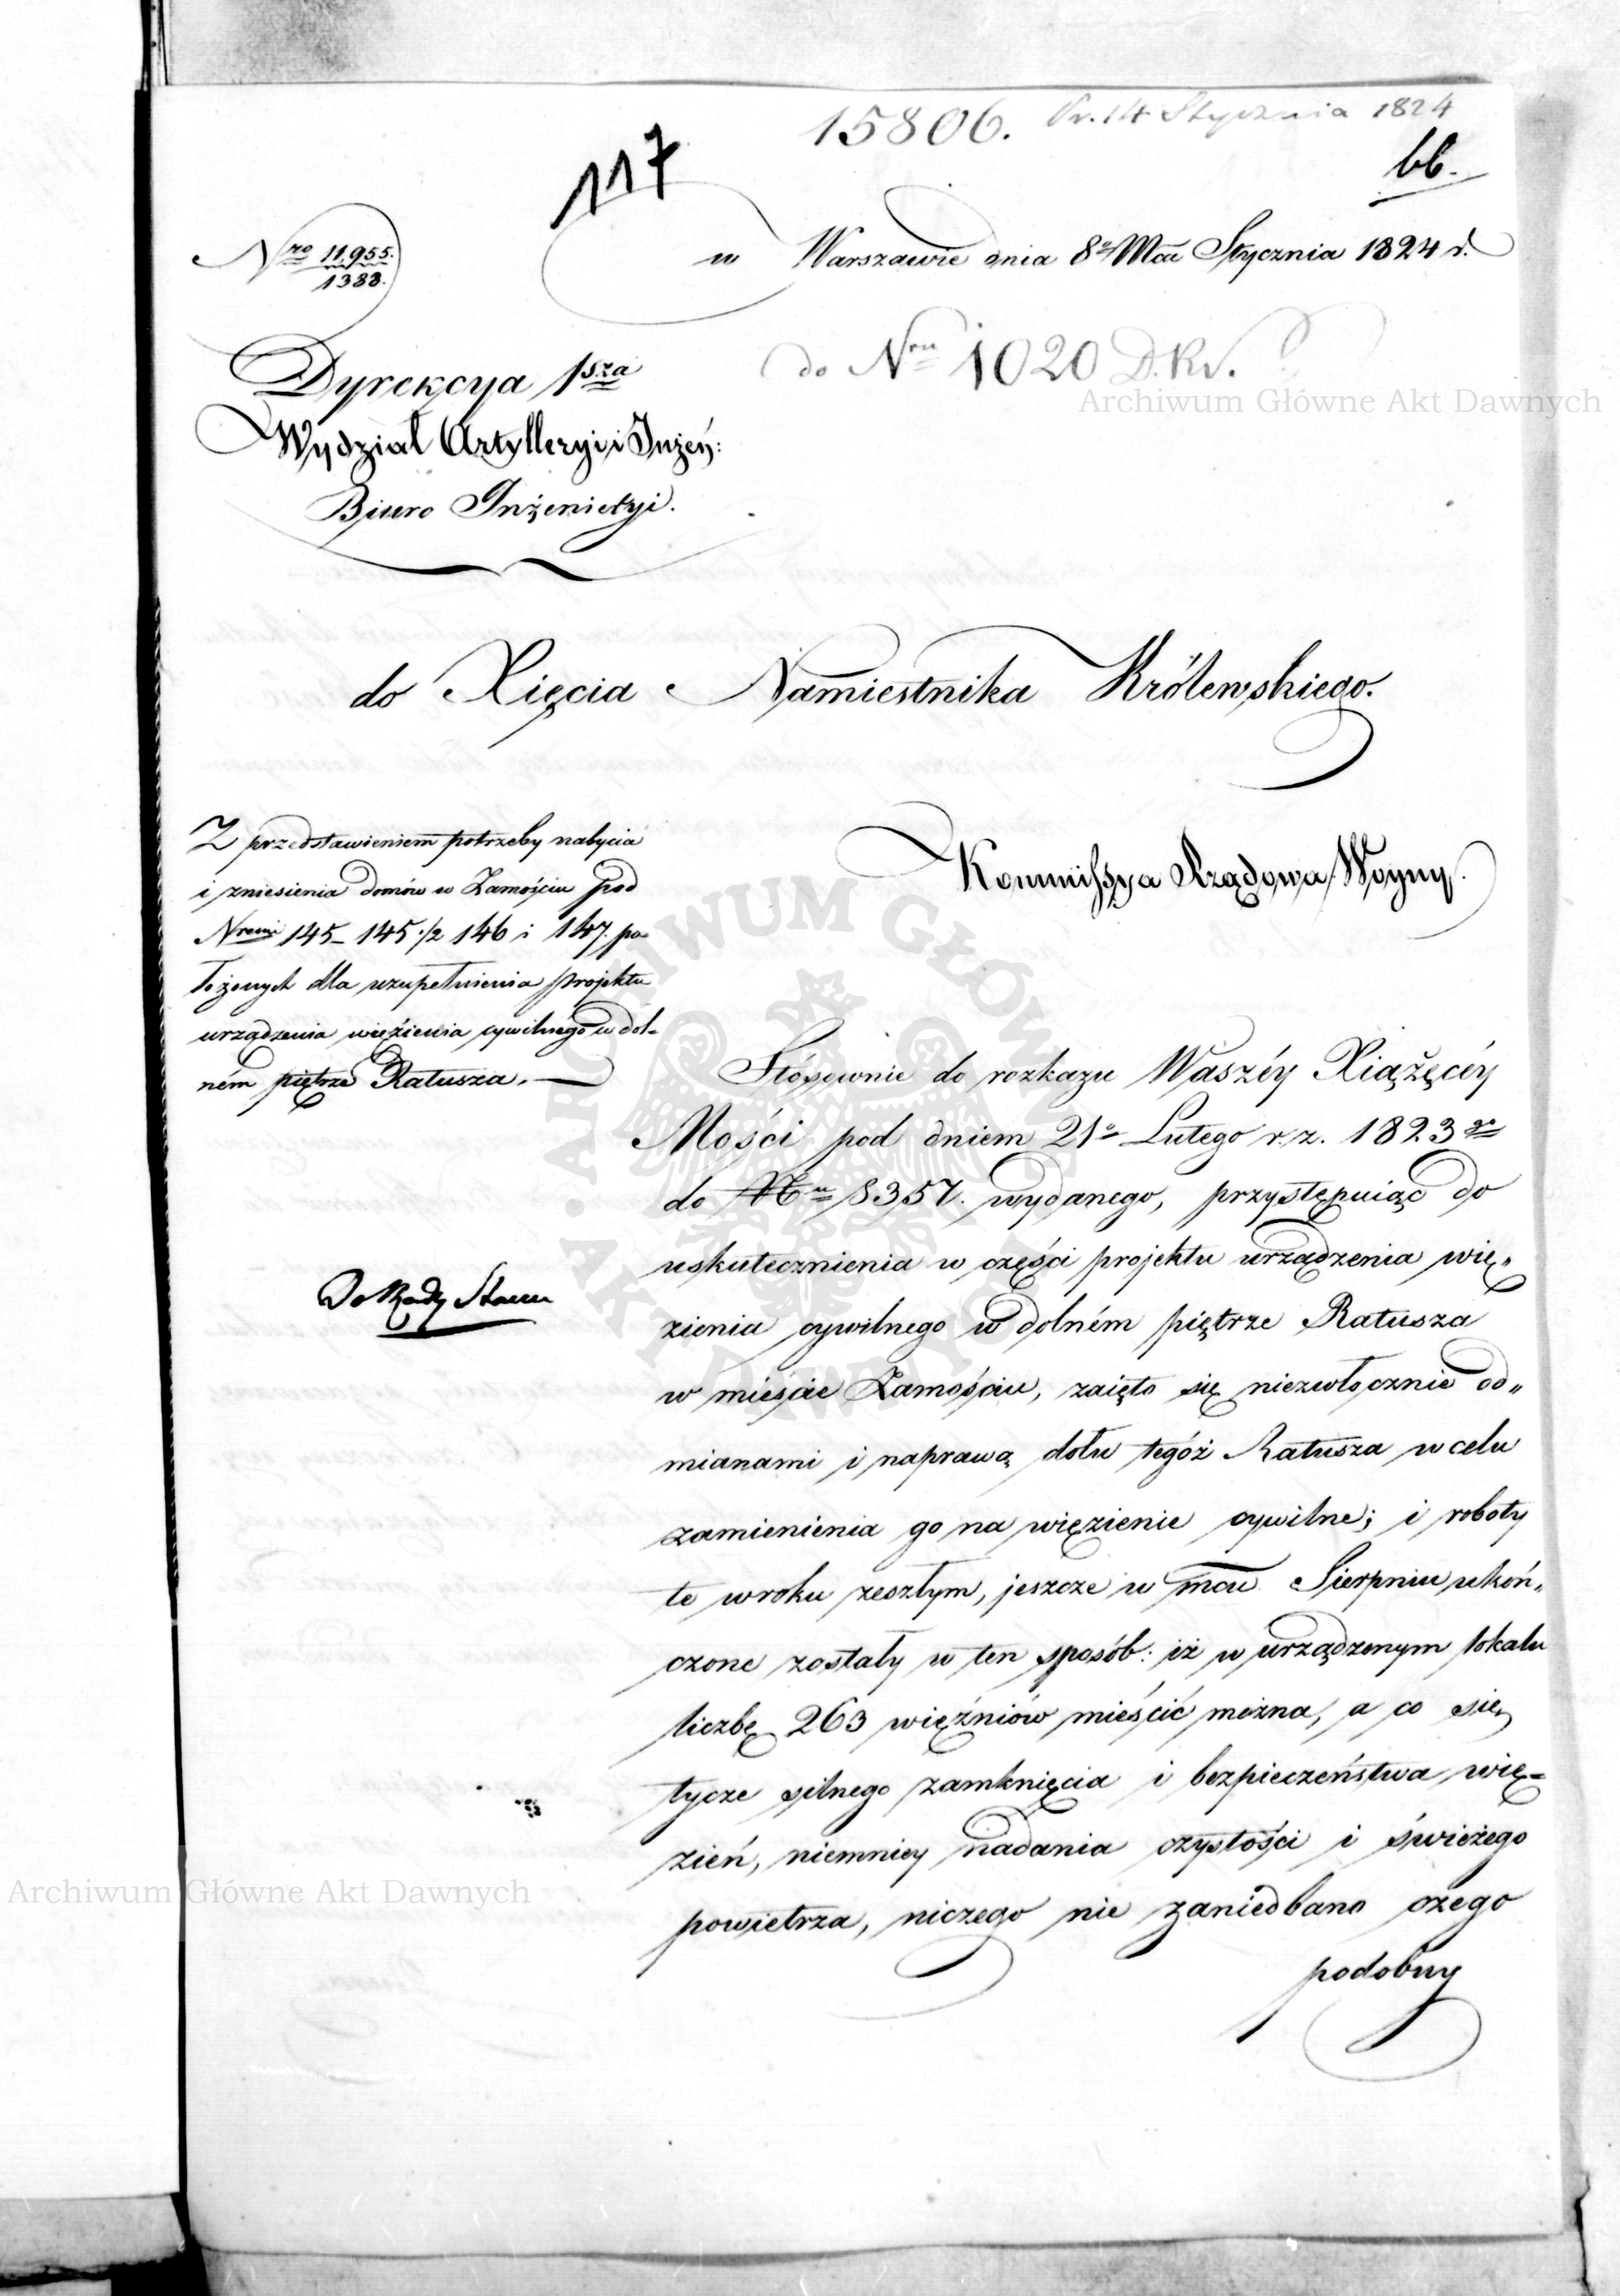 15806. Pr. 14 Stycznia 1824
117
bb.
Nro 11,955.
1388.
w Warszawie dnia 8o Mca Stycznia 1824 r.
do Nru 1020 D.Kr.
Archiwum Główne Akt Dawnych
Dyrekcya 1sza
Wydział Artylleryi i Inżeń:
Biuro Inżenieryi.
do Xięcia Namiestnika Królewskiego.
Kommissya Rządowa Woyny.
Z przedstawieniem potrzeby nabycia
i zniesienia domów w Zamościu pod
Nremi 145- 145 1/2 146 i 147. po-
łożonych dla uzupełnienia projektu
urządzenia więzienia cywilnego w dol-
ném piętrze Ratusza.
Do Rady Stanu
Stósownie do rozkazu Waszéy Xiążęcéy
Mości pod dniem 21o Lutego r. z. 1823go
do Nru 8357. wydanego, przystępuiąc do
uskutecznienia w części projektu urządzenia wię„
zienia cywilnego w dolném piętrze Ratusza
w mieście Zamościu, zaięto się niezwłocznie od„
mianami i naprawą dołu tegóż Ratusza w celu
zamienienia go na więzienie cywilne; i roboty
te w roku zeszłym, jeszcze w mcu Sierpniu ukoń„
czone zostały w ten sposób: iż w urządzonym lokalu
liczbę 263 więźniów mieścić można, a co się
tycze silnego zamknięcia i bezpieczeństwa wię=
zień, niemniey nadania czystości i świeżego
powietrza, niczego nie zaniedbano czego
podobny
ARCHIWUM GŁÓWNE
AKT DAWNYCH
Archiwum Główne Akt Dawnych